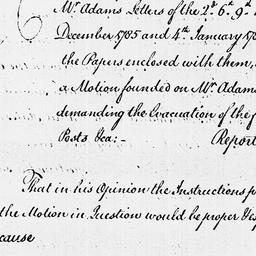 Mr. Adams Letters of the 2d. 6th. 9th.
December 1785 and 4th. January 178
the Papers enclosed with them,
a Motion founded on Mr. Adams
demanding the Evacuation of the
Posts &ca:— Report
That in his Opinion the Instructions p
the Motion in Question would be proper
cause